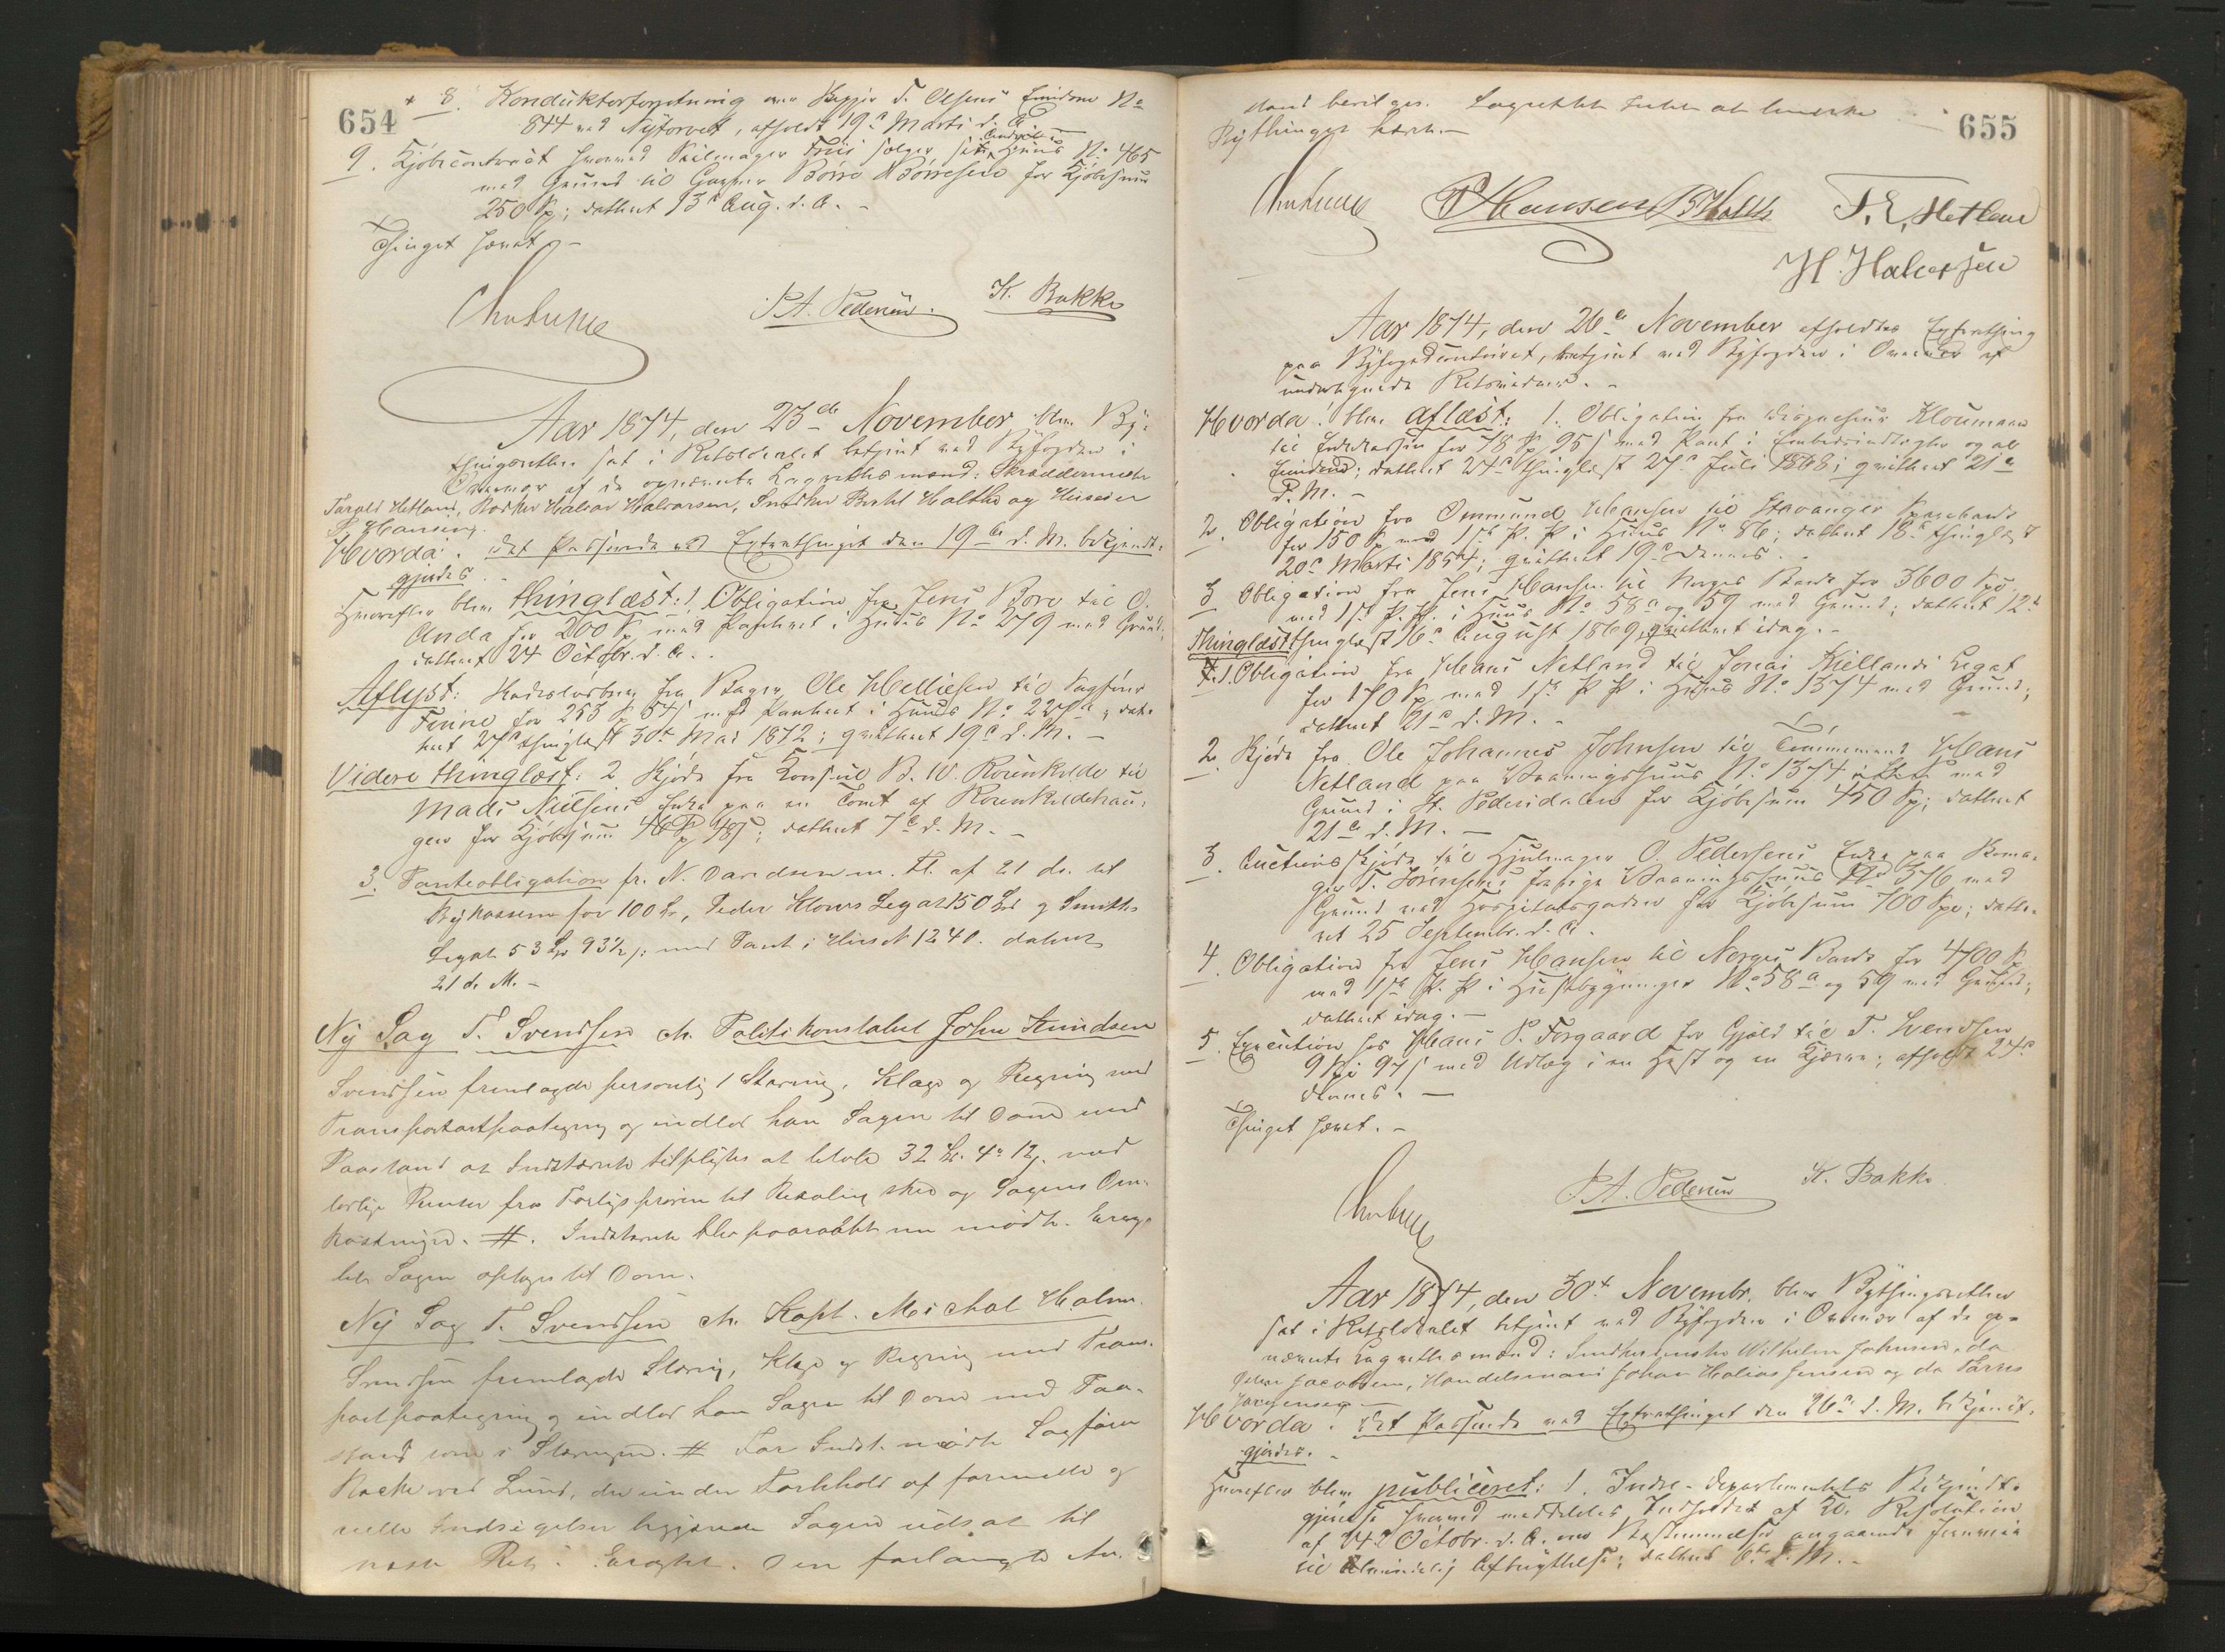 654
8. Konduktorforretning over Skipper T. Olsens Eiendom No
844 ved Nytorvet, afholdt 19de Marts d. A.
9. Kjöbecontract hvorved Seilmager Friis sælger sit Huus No 465
med Grund til Garver Börre Börresen for Kjöbesum
250 Sp; dateret 13de Aug. d. A. -
Thinget hævet. -
P.A. Pedersen. K. Bakke
Aar 1874, den 23de November blev By-
thingsretten sat i Retslocalet betjent ved Byfogden i
Overvær af de opnævnte Lagrettesmænd: Skræddermester
Tarald Hetland, Halvor Halvorsen, Snedker Bertel Holthe og
P. Hansen.
Hvorda: Det Passerede ved Extrathinget den 19de d. M. bekjendt-
gjordes. -
Hvorefter blev thinglæst: 1. Obligation fra Jens Bore til O.
Anda for 200 Sp med Panteret i Huus No 279 med Grund;
dateret 24 Octbr. d. A. -
Aflyst: fra Bager Ole Helliesen til Sagförer
Finne for 253 Sp 54 s med Panteret i Huus No 227a; date-
ret 27de thinglæst 30te Mai 1872; qvitteret 19de d. M. -
Videre thinglæst: 2 Skjöde fra Consul B. W. Rosenkilde til
Mads Nielsens Enke paa en Tomt af Rosenkildehau-
gen for Kjöbesum 46 Sp 48 s; dateret 7de d. M. -
3. Panteobligation fr. N. Davidsen m. Fl. af 21 ds. til
Bykassen for 100 Spd, Peder Klows Legat 150 Spd og Smiths
Legat 53 Spd 93½ s. med Pant i Huus N 1240. dateret
21 d. M. -
Ny Sag T. Svendsen ctr. Politikonstabel John Knudsen
Svendsen fremlagde personlig 1 Stævning, Klage og Regning med
Transportpaategning og indlod han Sagen til Dom med
Paastand at Indstævnte tilpligtes at betale 32 Spd. 4 12 s. med
lovlige Renter fra Forligspröven til Betaling skeer og Sagens Om-
kostninger. #. Indstævnte blev paaraabt men mödte. Eragt
blev Sagen optages til Dom.
Ny Sag T. Svendsen ctr. Kapt. Michal Holm.
Svendsen fremlagde Stævning, Klage og Regning med Trans-
portpaategning og indlod han Sagen til Dom med Paa-
stand som i Stævningen. # For Indst. mödte Sagförer
ved Lund, der under Forbehold af formelle og
reelle Indsigelser begjærede Sagen udsat til
næste Ret. Eragtet. Den forlangte An-
655
stand bevilges. Lagretten
Bythinget hævet. -
P Hansen B Holthe T. E. Hetland
H. Halvorsen
Aar 1874, den 26de November afholdtes Extrathing
paa Byfogedcontoiret, betjent ved Byfogden i Overvær af
undertegnede Retsvidner. -
Hvorda: blev aflæst: 1. Obligation fra Kloumann
til for 78 Sp 95 s med Pant i Embedsindtægter og al
Eiendom; dateret 24de thinglæst 27de Juli 1868; qvitteret 21de
d. M. -
2. Obligation fra Ommund Hansen til Stavanger Sparebank
for 150 Sp med 1ste P. P. i Huus No 86; dateret 18de thinglæst
20de Marts 1854; qvitteret 19de dennes. -
3 Obligation fra Jens Hansen til Norges Bank for 3600 Spd
med 1ste P. P. i Huus No 58a og 59 med Grund; dateret 12te
thinglæst 16de August 1869, qvitteret idag. -
Thinglæst:
1. Obligation fra Hans Netland til Jonas Kiellands Legat
for 170 Sp med 1ste P P i Huus No 1374 med Grund;
dateret 21de d. M. -
2. Skjöde fra Ole Johannes Johnsen til Tömmermand Hans
Netland paa Vaaningshuus No 1374 med
Grund i St. Pedersdalen for Kjöbesum 450 Sp; dateret
21de d. M. -
3. Auctionsskjöde til Hjulmager O. Pedersens Enke paa
T. forrige Vaaningshuus No 376 med
Grund ved Hospitalsgaden for Kjöbesum 700 Spd; date-
ret 25 Septembr. d. A.
4. Obligation fra Jens Hansen til Norges Bank for 4700 Sp
med 1ste P. P i Huusbygninger No 58a og 59 med Grund;
dateret idag. -
5. Execution hos Hans P. Forgaard for Gjeld til T. Svendsen
9 Sp 97 s med Udlæg i en Hest og en Kjærre; afholdt 24de
dennes. -
Thinget hævet. -
P.A. Pedersen K. Bakke
Aar 1874, den 30te Novembr. blev Bythingsretten
sat i Retslokalet betjent ved Byfogden i Overvær af de op-
nævnte Lagrettesmænd: Snedkermester Wilhelm Johnsen, do
Jacobsen, Handelsmand Johan Helias Jensen og do
Jörgensen -
Hvorda: Det Passerede ved Extrathinget den 26de d. M. bekjendt-
gjordes. -
Hvorefter blev publiceret: 1. Indre-Departementets Bekjendt-
gjörelse hvorved meddeles Indholdet af Kl. Resolution
af 24de Octobr. d. A. om Bestemmelser angaaende
til almindelig Afbenyttelse; dateret 6te d. M. -